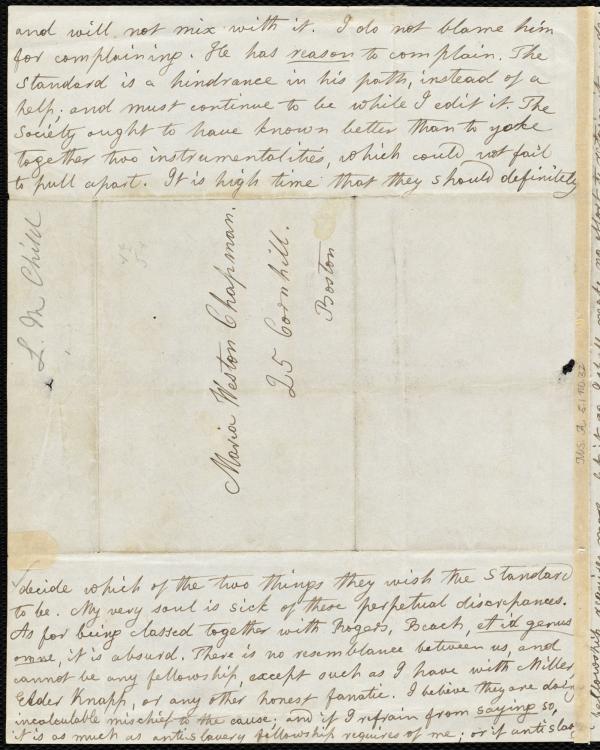 and will not mix with it. I do not blame him
for complaining. He has reason to complain. The
Standard is a hindrance in his path, instead of a
help; and must continue to be while I edit it. The
Society ought to have known better than to yoke
together two instrumentalities, which could not fail
to pull apart. It is high time that they should definitely
L. M. Child
Maria Weston Chapman.
25 Cornhill.
Boston
decide which of the two things they wish the Standard
to be. My very soul is sick of these perpetual discrepances.
As for being classed together with Rogers, Beach, et id genus
omne, it is absurd. There is no resemblance between us, and
cannot be any fellowship, except such as I have with Miller,
Elder Knapp, or any other honest fanatic. I believe they are doing
incalculable mischief to the cause; and if I refrain from saying so,
it is as much as anti slavery fellowship requires of me; or if anti slav